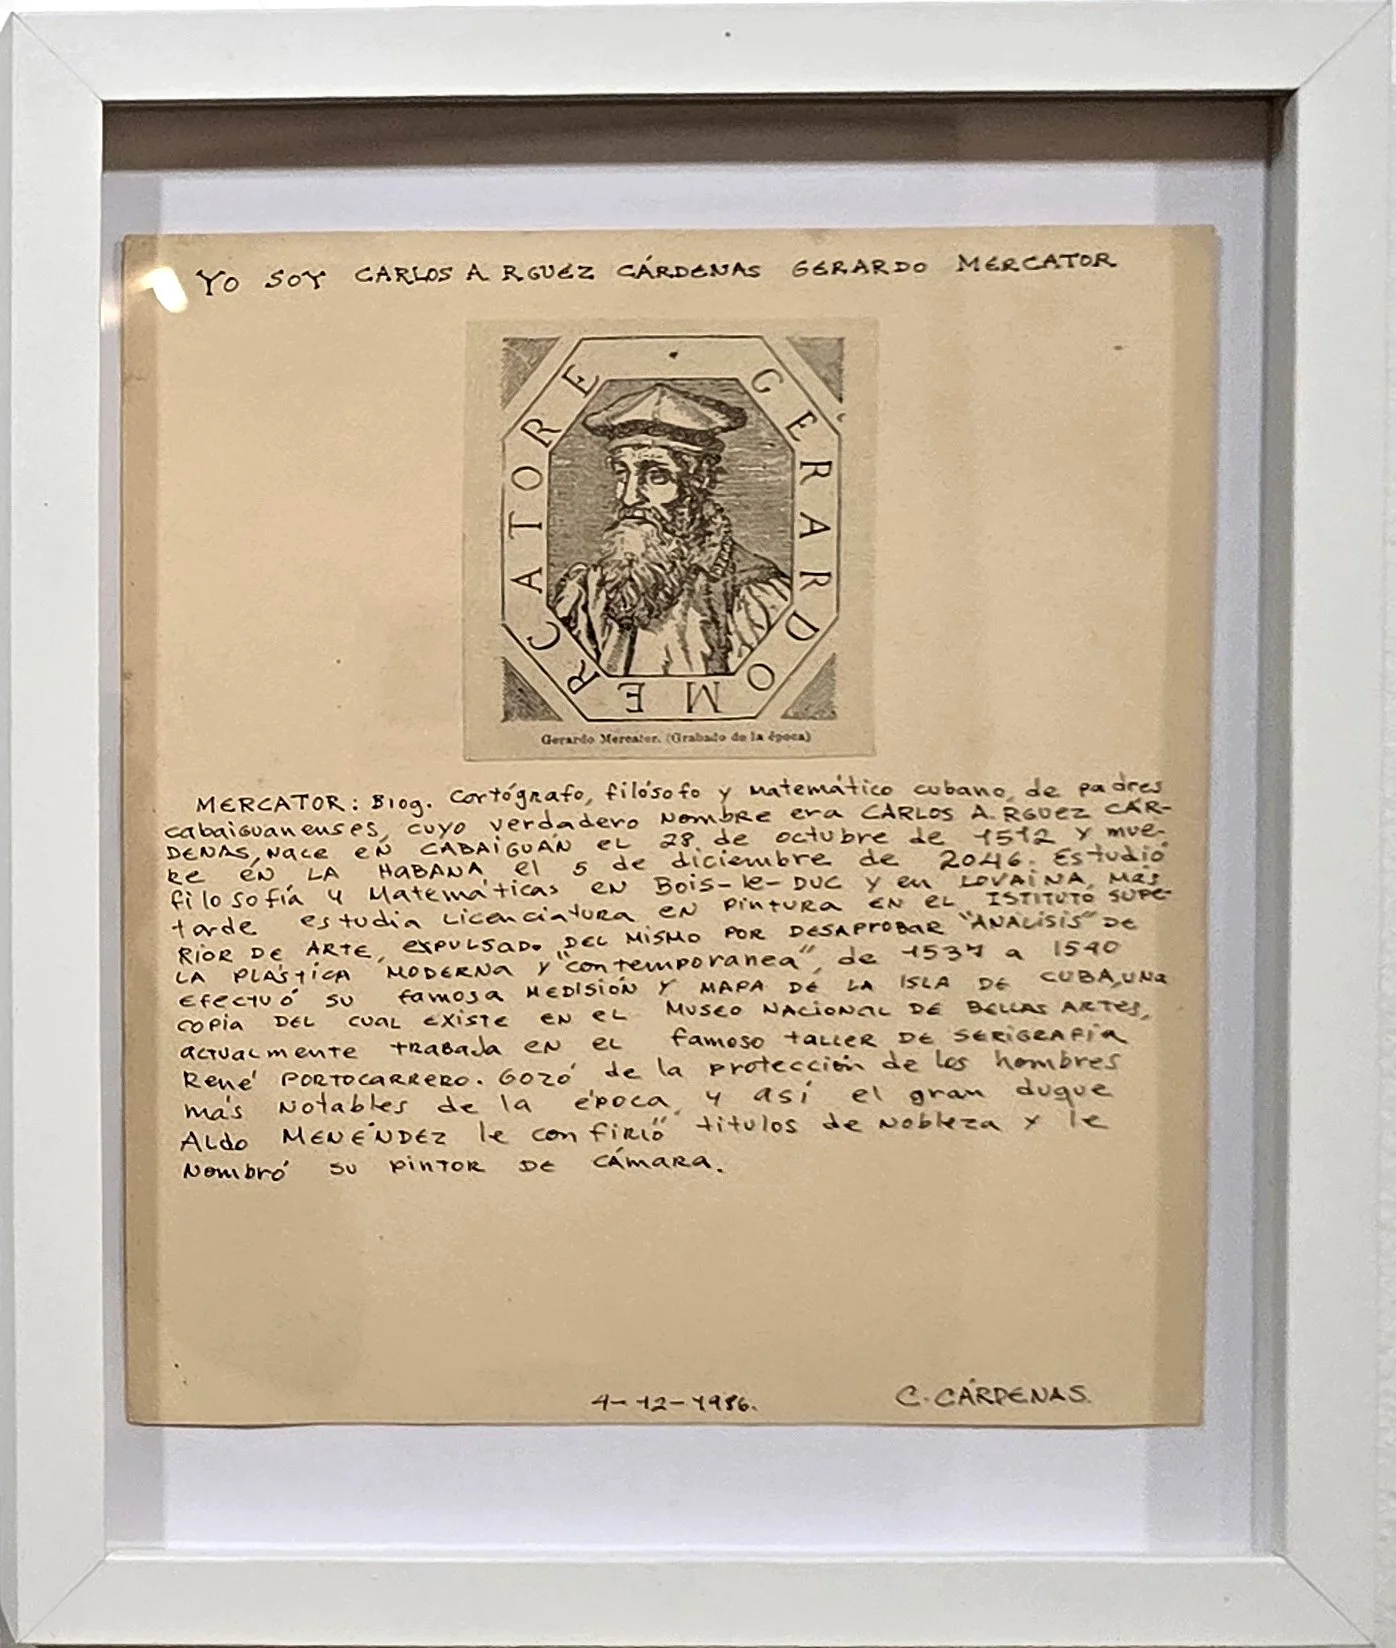 YO SOY CARLOS A RGUEZ CÁRDENAS GERARDO MERCATOR
GERARDO MERCATORE
Gerardo Mercator. (Grabado de la época)
MERCATOR: Biog. Cartógrafo, filósofo y matemático cubano, de padres
cabaiguanenses, cuyo verdadero nombre era CARLOS A. RGUEZ CÁR-
DENAS, nace en CABAIGUÁN el 28 de octubre de 1512 y mue-
re en LA HABANA el 5 de diciembre de 2046. Estudió
filosofía y Matemáticas en Bois-le-DUC y en LOVAINA, MAS
tarde estudia Licenciatura en pintura en el ISTITUTO SUPE-
RIOR DE ARTE, expulsado DEL MISMO POR DESAPROBAR "ANALISIS" DE
LA PLÁSTICA MODERNA y "contemporanea", de 1537 a 1540
EFECTUÓ SU famosa MEDISIÓN Y MAPA DE LA ISLA DE CUBA, UNA
copia DEL CUAL EXISTE EN EL MUSEO NACIONAL DE BELLAS ARTES,
actualmente trabaja en el famoso taller DE SERIGRAFÍA
René PORTOCARRERO. Gozó de la protección de los hombres
más Notables de la época, y así el gran duque
ALDO MENÉNDEZ le confirió titulos de nobleza y le
Nombró su pintor de CÁMARA.
4-12-1986.
C. CÁRDENAS.